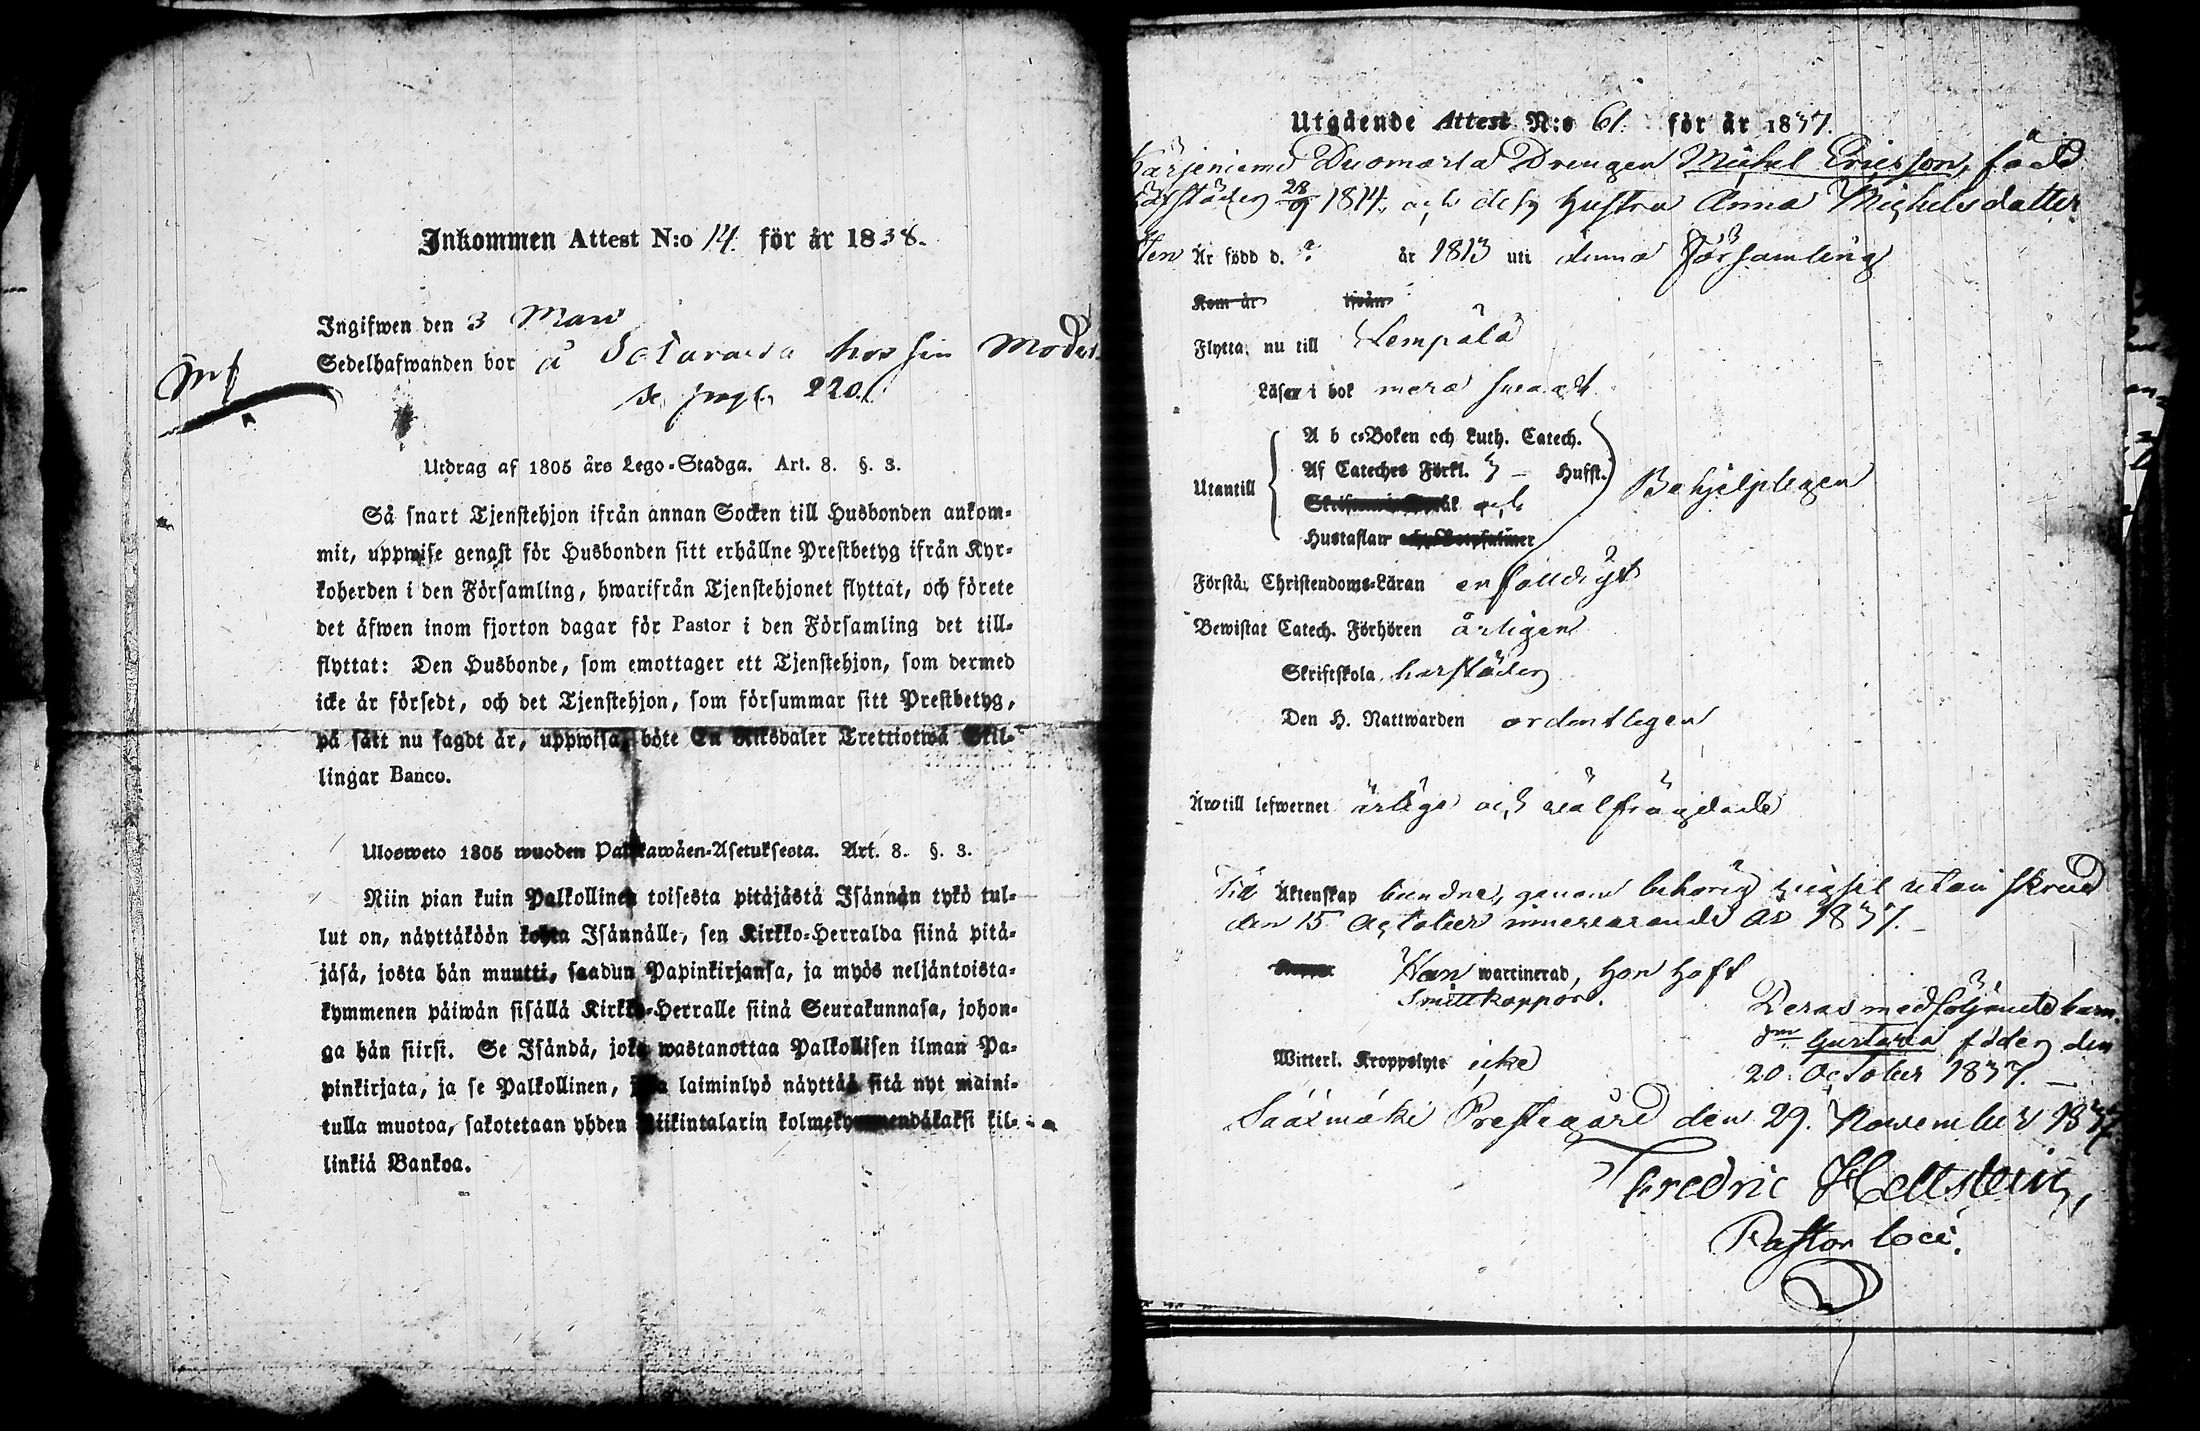 Inkommen Attest N:o 14. för år 1838.
Ingifwen den 3 Mars
Sedelhafwanden bor å hos sin Moder
se pag. 220.
Utdrag af 1805 års Lego-Stadga. Art. 8. §. 3.
Så snart Tjenstehjon ifrån annan Socken till Husbonden ankom-
mit, uppwise genast för Husbonden sitt erhållne Prestbetyg ifrån Kyr-
koherden i den Församling, hwarifrån Tjenstehjonet flyttat, och förete
det äfwen inom fjorton dagar för Pastor i den Församling det till-
flyttat: Den Husbonde, som emottager ett Tjenstehjon, som dermed
icke är försedt, och det Tjenstehjon, som försummar sitt Prestbetyg,
på sätt nu sagdt är, uppwisa, böte En Riksdaler Trettiotwå Skil-
lingar Banco.
Ulosweto 1805 wuoden Palkkawäen-Asetuksesta. Art. 8. §. 3.
Niin pian kuin Palkollinen toisesta pitäjästä Isännän tykö tul-
lut on, näyttäköön kohta Isännälle, sen Kirkko-Herralda siinä pitä-
jäsä, josta hän muutti, saadun Papinkirjansa, ja myös neljäntoista-
kymmenen päiwän sisällä Kirkko-Herralle siinä Seurakunnasa, johon-
ga hän siirsi. Se Isändä, joka wastanottaa Palkollisen ilman Pa-
pinkirjata, ja se Palkollinen, joka laiminlyö näyttää sitä nyt maini-
tulla muotoa, sakotetaan yhden Riikintalarin kolmekymmendäkaksi kil-
linkiä Bankoa.
Utgående Attest N:o 61. för år 1837.
Kärjeniemi Duomarla Drengen Michel Ericsson, född
härstädes 28/9 1814, och dess hustru Anna Michelsdotter
Hen Är född d. ? år 1813 uti denna Församling
Kom år ifrån
Flytta, nu till Lempälä
Läser i bok mera swagt
Utantill
A b c-Boken och Luth. Catech.
Af Cateches Förkl. 3 — Hufst.
och
Hustaflan
Behjelpligen
Förstå, Christendoms-Läran enfalldigt
Bewistat Catech. Förhören årligen
Skriftskola härstädes
Den H. Nattwarden ordentligen
Äro till lefwernet ärliga och wälfrägdade
Till Äktenskap bundne, genom behörig wigsel utan skrud
den 15 October innewarande År 1837.
Han waccinerad, hon haft
Smittkoppor.
Deras medföljande barn.
Gustava födes den
20 October 1837. —
Witterl. Kroppslyte icke
Sääxmäki Prestegård den 29. November 1837
Fredric Hellstein,
Pastor loci.